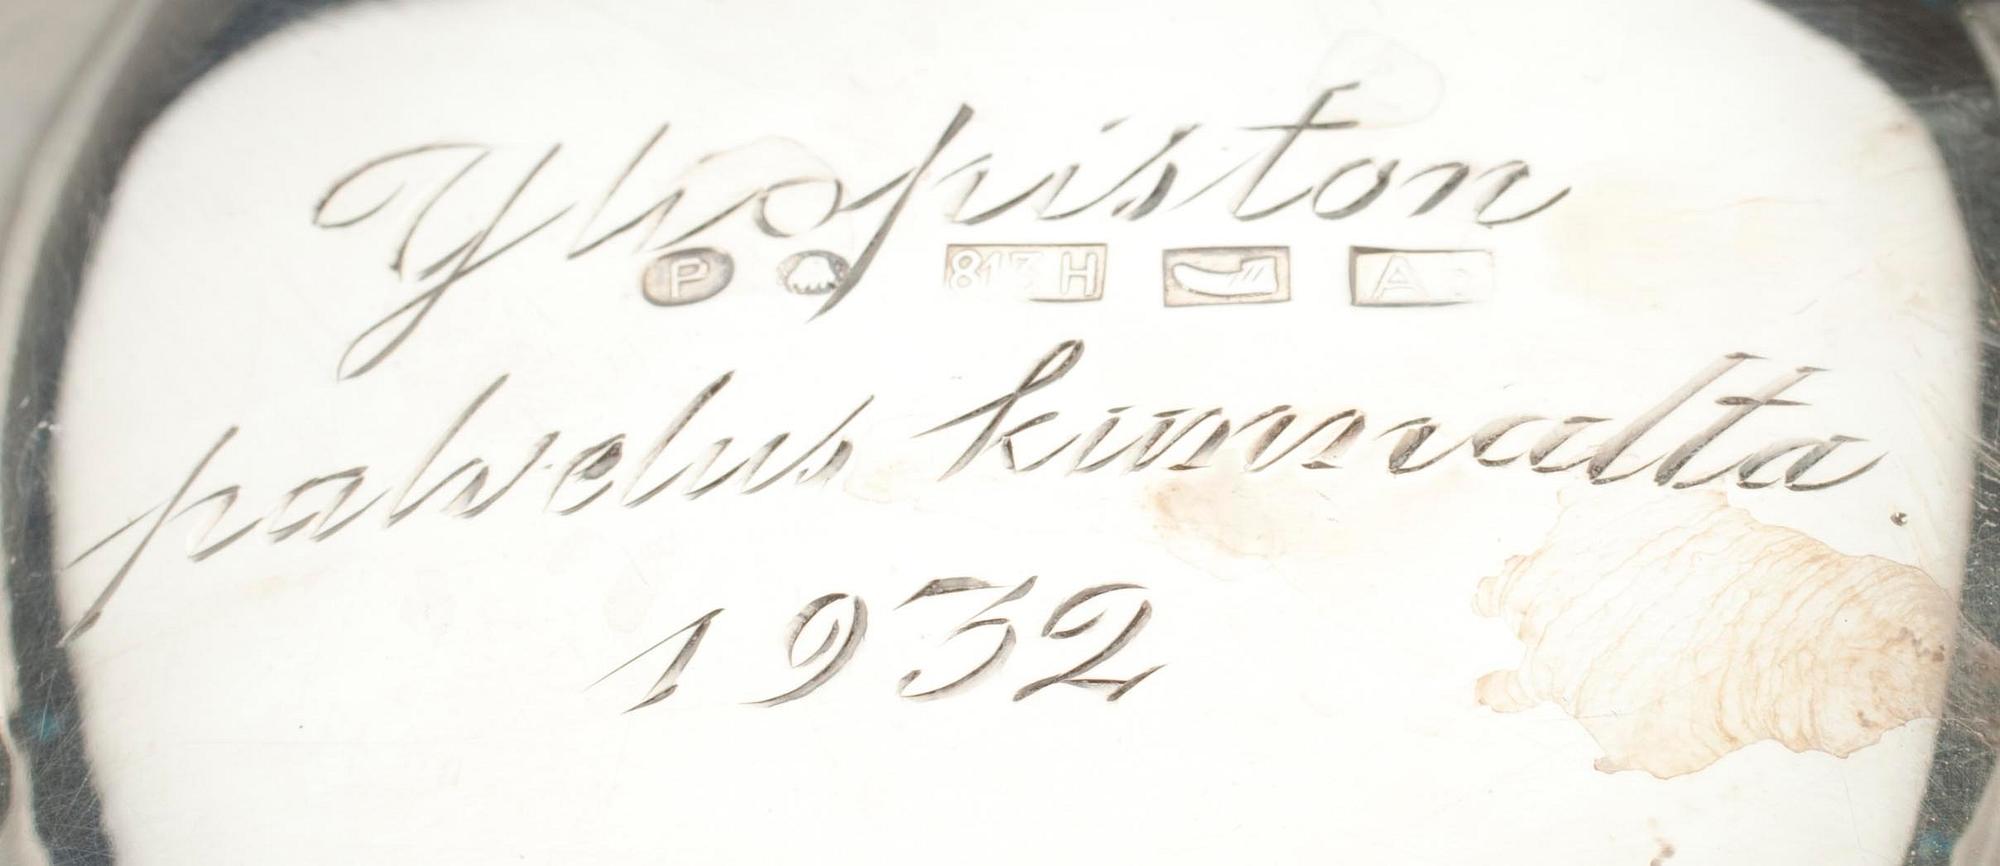 Yliopiston
P 813 H A
palvelus kunnalta
1932